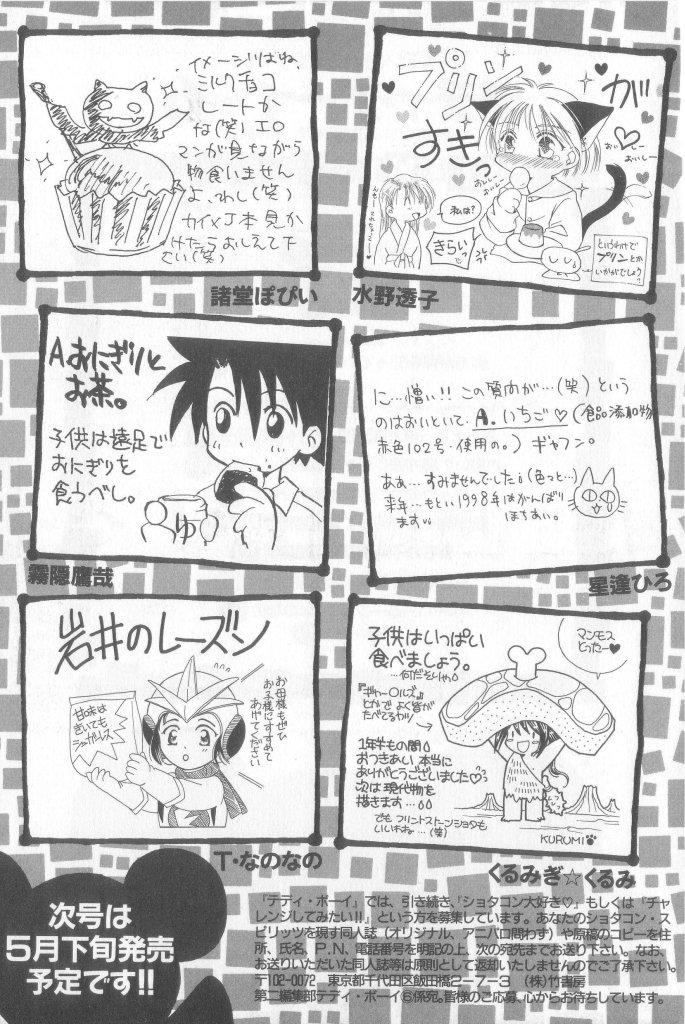 プリンが
すきっ
おいしー
おいしー
おいしー
おいしー
私は?
きらいっ
というわけで
プリンとか
いかがでしょう?
水野透子
イメージ的ばね、
ミルクチョコ
レートか
な(笑)エロ
マンガ見ながら
物食いません
よ、わし(笑)
カイメJ本見か
けたらおしえて下
さい(笑)
諸堂ぽぴい
Aおにぎりと
お茶。
子供は遠足で
おにぎりを
食うべし。
ゆ
霧隠鷹哉
に…憎い!!この質問が…(笑)という
のはおいといて、A.いちご♡(食品添加物
赤色102号・使用の。)ギャフン。
ああ…すみませんでした¡(色っと…)
来年…もとい1998年はがんばり
ます
星逢ひろ
岩井のレーズン
お母様もぜひ
お子様にすすめて
あげてください
甘味は
きいても
シュガーレス
T・なのなの
子供はいっぱい
食べましょう。
…何だそりゃ
『ギャートルズ』
とかで よく皆が
たべてるカンジ
マンモス
とったー♡
1年半もの間
おつきあい 本当に
ありがとうございました♡
次は現代物を
描きます…
でも フリントストーンショタも
いいかもね…(笑)
KURUMI
くるみぎ☆くるみ
次号は
5月下旬発売
予定です!!
「テディ・ボーイ」では、引き続き、「ショタコン大好き♡」もしくは「チャ
レンジしてみたい!!」という方を募集しています。あなたのショタコン・ス
ピリッツを現す同人誌(オリジナル、アニパロ問わず)や原稿のコピーを住
所、氏名、P.N、電話番号を明記の上、次の宛先までお送り下さい。なお、
お送りいただいた同人誌等は原則として返却いたしませんのでご了承下さい。
〒102-0072 東京都千代田区飯田橋2−7−3 (株)竹書房
第二編集部テディ・ボーイ⑥係宛。皆様のご応募、心からお待ちしています。